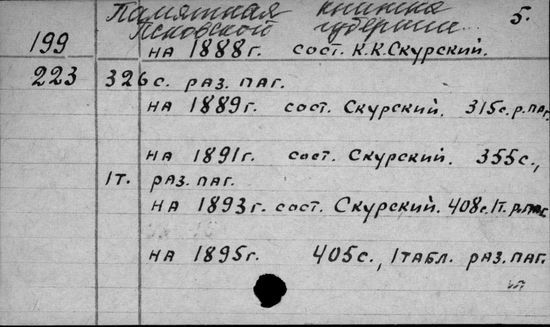 Памятная книжка 5.
Псковской губернии.
199 на 1888г. сост. К.К.Скурский.
223 326 с. раз. паг.
на 1889г. сост. Скурский. 315с.р.паг.
на 1891г. сост. Скурский. 355с.,
1т. раз. паг.
на 1893г. сост. Скурский. 408с.1т.р.паг
на 1895г. 405с., 1табл. раз. паг.